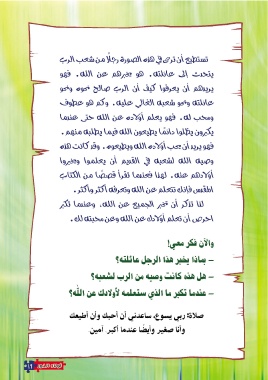 تستطيع أن ترى في هذه الصورة رجلًا من شعب الرب
يتحدث إلى عائلته. هو يخبرهم عن الله. فهو
يريدهم أن يعرفوا كيف أن الرب صالح نحوه ونحو
عائلته ونحو شعبه الغالي عليه. وكم هو عطوف
ومحب له. فهو يعلم أولاده عن الله حتى عندما
يكبرون يظلوا دائمًا يطيعون الله فيما يطلبه منهم.
فهو يريد أن يحب أولاده الله ويطيعوه. وقد كانت هذه
وصية الله لشعبه في القديم أن يعلموا ويخبروا
أولادهم عنه. لهذا فعندما نقرأ قصصًا من الكتاب
المقدس فإنك تتعلم عن الله وتعرفه أكثر وأكثر.
لذا تذكر أن تخبر الجميع عن الله. وعندما تكبر
احرص أن تعلم أولادك عن الله وعن محبته لك.
والآن فكر معي!
– بماذا يخبر هذا الرجل عائلته؟
– هل هذه كانت وصية من الرب لشعبه؟
– عندما تكبر ما الذي ستعلمه لأولادك عن الله؟
صلاة: ربي يسوع، ساعدني أن أحبك وأن أطيعك
وأنا صغير وأيضًا عندما أكبر. آمين.